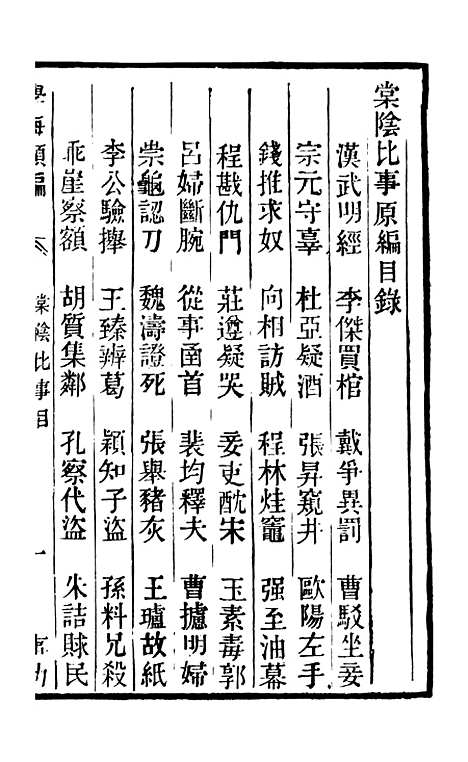 棠陰比事原編目錄
漢武明經 李傑買棺 戴爭異罰 曹駁坐妾
宗元守辜 杜亞疑酒 張昇窺井 歐陽左手
錢推求奴 向相訪賊 程林炷竈 强至油幕
程戡仇門 莊遵疑哭 妾吏酖宋 玉素毒郭
呂婦斷腕 從事函首 裴均釋夫 曹攄明婦
崇龜認刀 魏濤證死 張舉豬灰 王璩故紙
李公驗擧 王臻辨葛 穎知子盜 孫料兄殺
乖崖察額 胡質集鄰 孔察代盜 朱詰賕民
學海類編 棠陰比事目 一